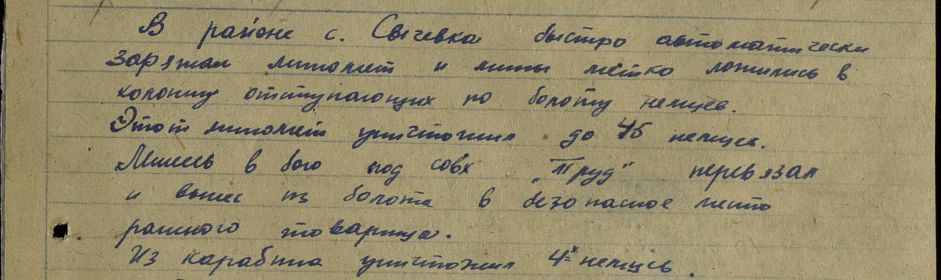 В районе с. Сычевка быстро автоматически
заряжал миномет и мины метко ложились в
колонну отступающих по болоту немцев.
Этот миномет уничтожил до 45 немцев.
в бою под совх "Труд" перевязал
и вынес из болота в безопасное место
раненого товарища.
Из карабина уничтожил 4х немцев.